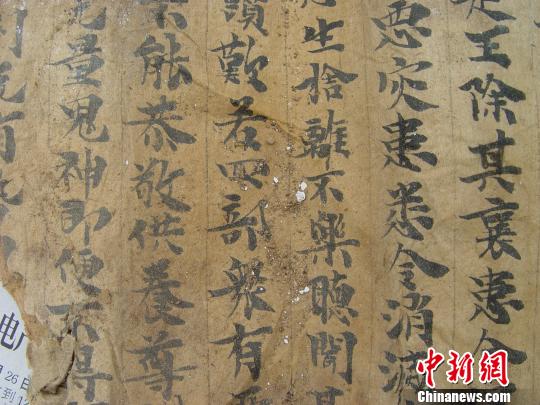 王除其衰患令
惡灾患悉令消滅
生捨離不樂聽聞其
讚歎若四部衆有
能恭敬供養尊
量鬼神即便不得
电
26日
到1
中新网
Chinanews.com